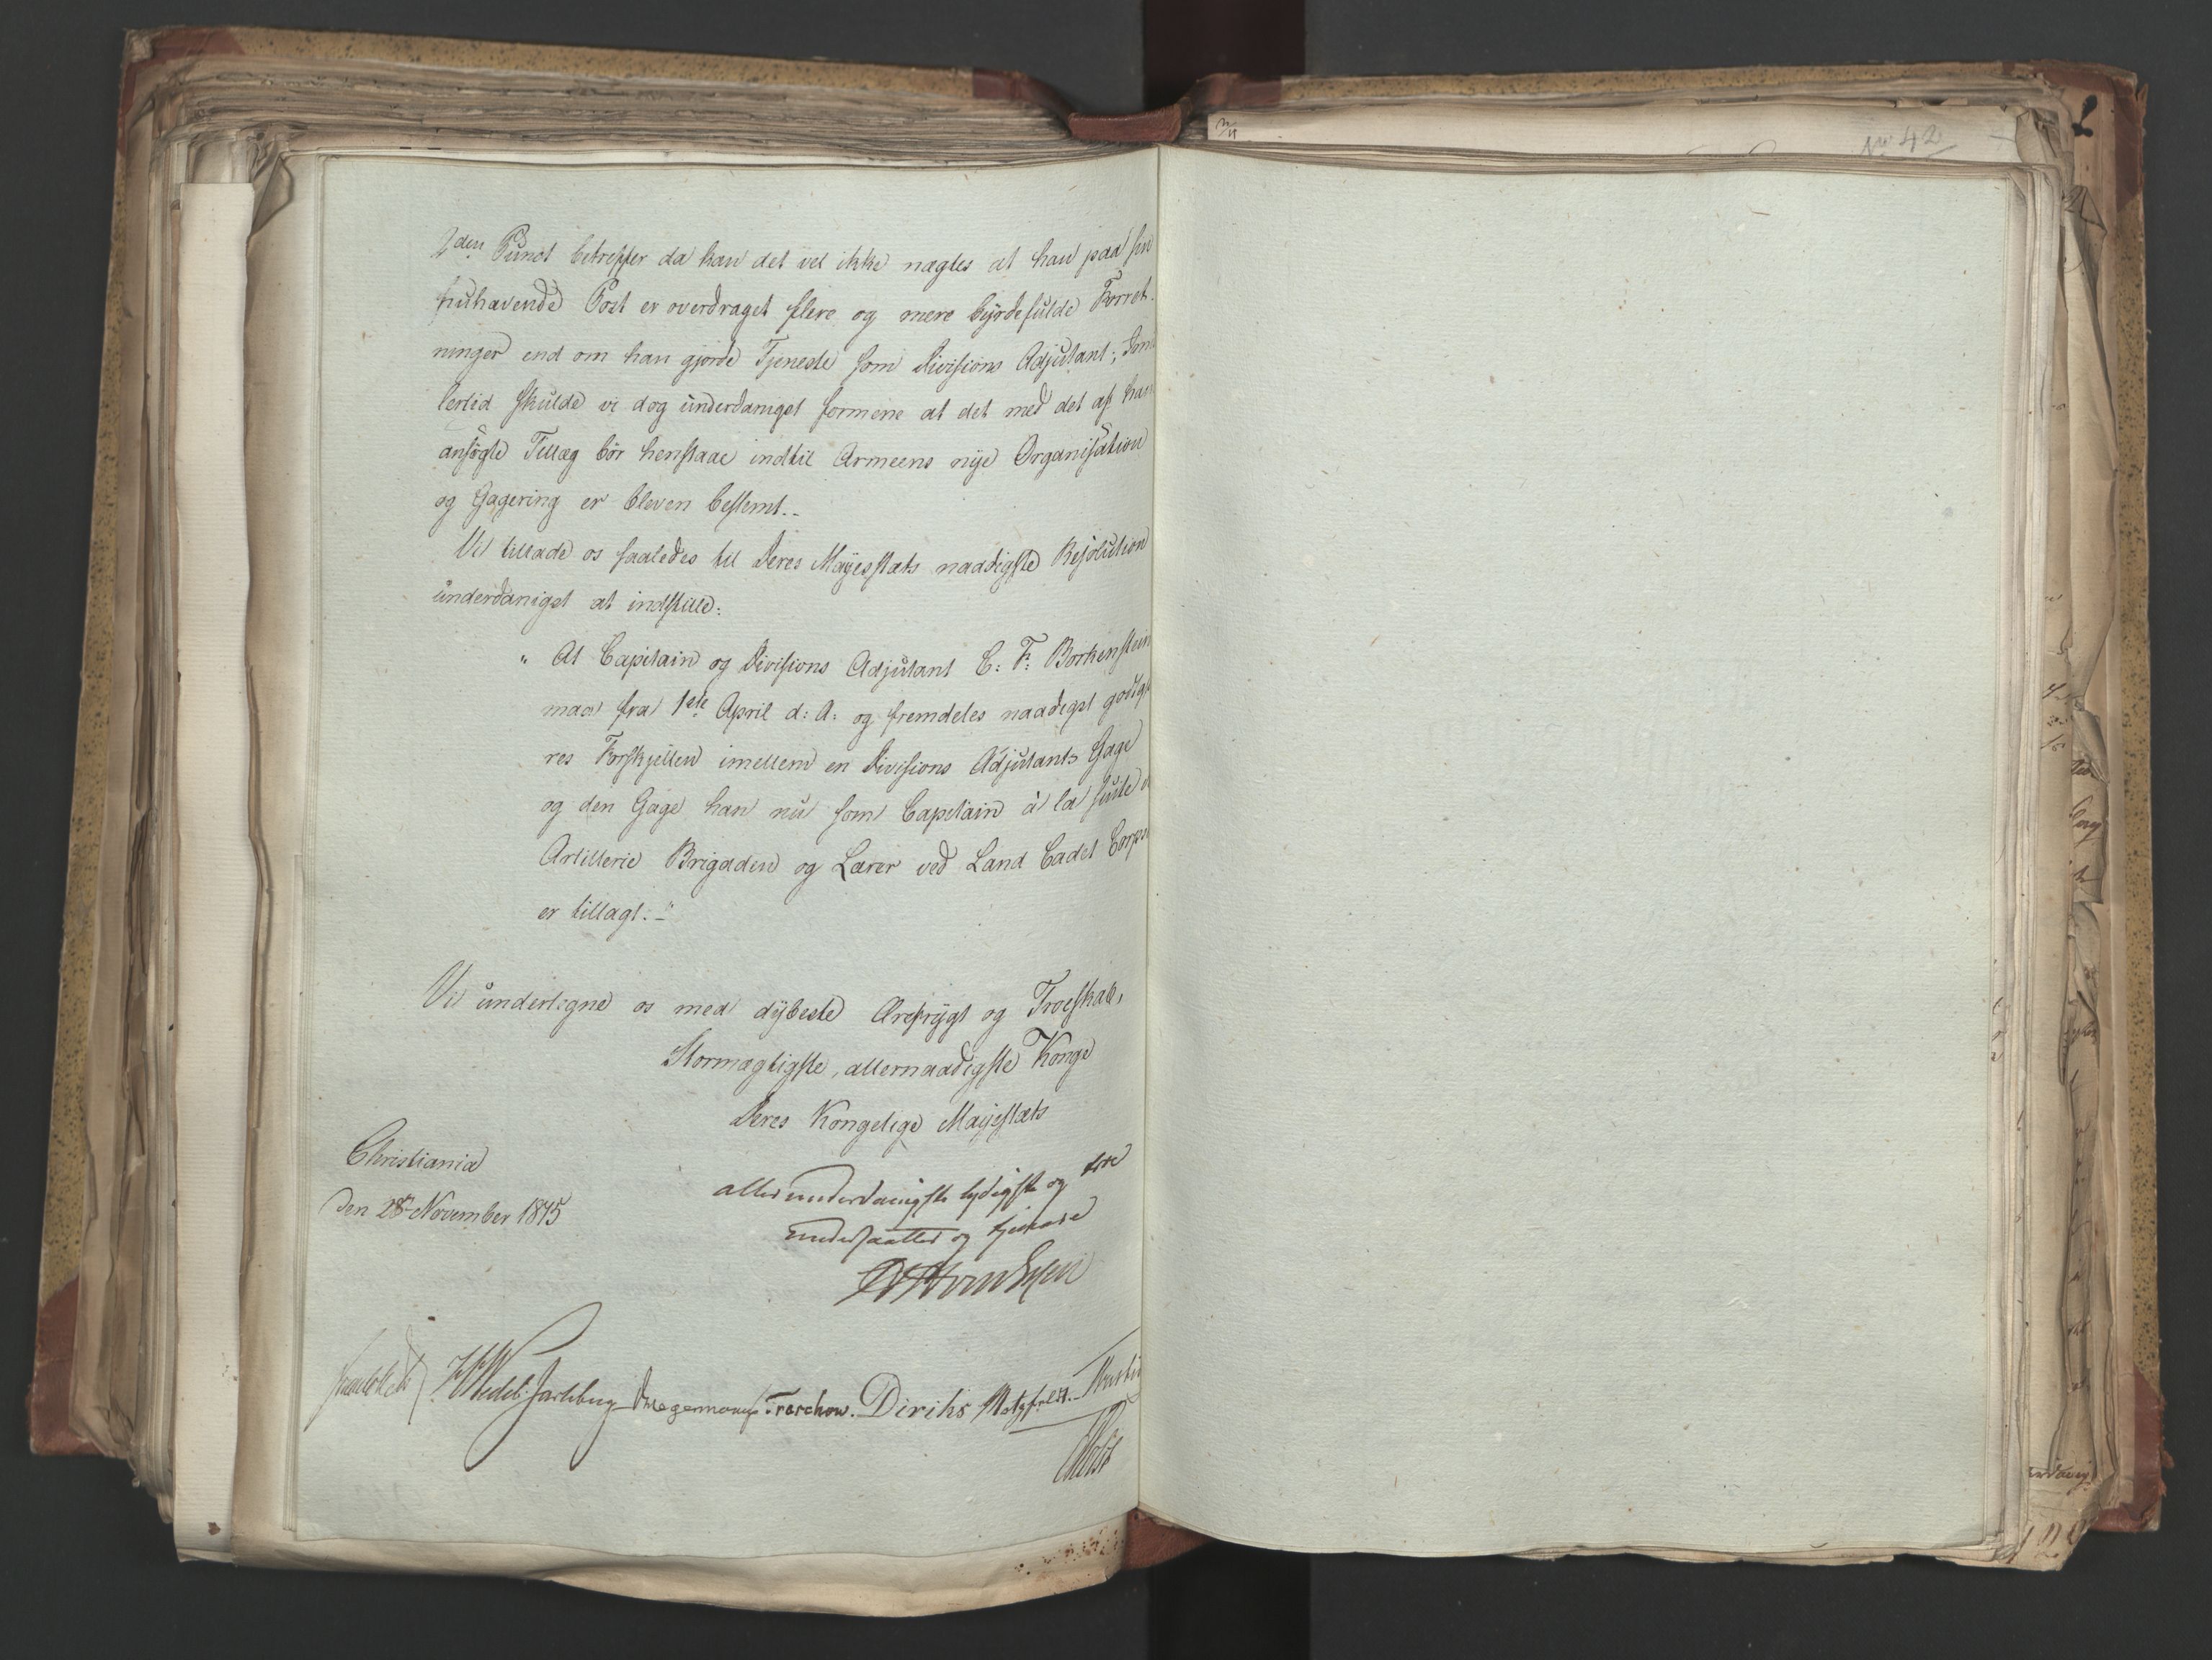 2den Punct betreffer da kan det vel ikke nægtes at han paa sin
nuhavende Post er overdraget flere og mere byrdefulde Forret-
ninger end om han gjorde Tjeneste som Divisions Adjutant; Im
lertid skulde vi dog underdanigst formene at det med det af ham
ansøgte Tillæg bør henstaae indtil Armeens nye Organisation
og Gagering er bleven bestemt.-
Vi tillade os saaledes til Deres Mayestæts naadigste Resolution
underdanigst at indstille:
" At Capitain og Divisions Adjutant C: F: Borkenstein
maa fra 1ste April d: A: og fremdeles naadigst godtgjø
res Forskjellen imellem en Divisions Adjutants Gage
og den Gage han nu som Capitain à la suite v
Artillerie Brigaden og Lærer ved Land Cadet Corps
er tillagt.-"
Vi undertegne os med dybeste Ærefrygt og Troeskab,
Stormægtigste, allernaadigste Konge
Deres Kongelige Mayestæts
Christiania
den 28 November 1815
allerunderdanigste lydigste og troe
undersaatter og tjenere
Haxthausen? 
HWedel-Jarlsberg Hegermann Treschow. Diriks Motzfeldt.
Holst
No 42